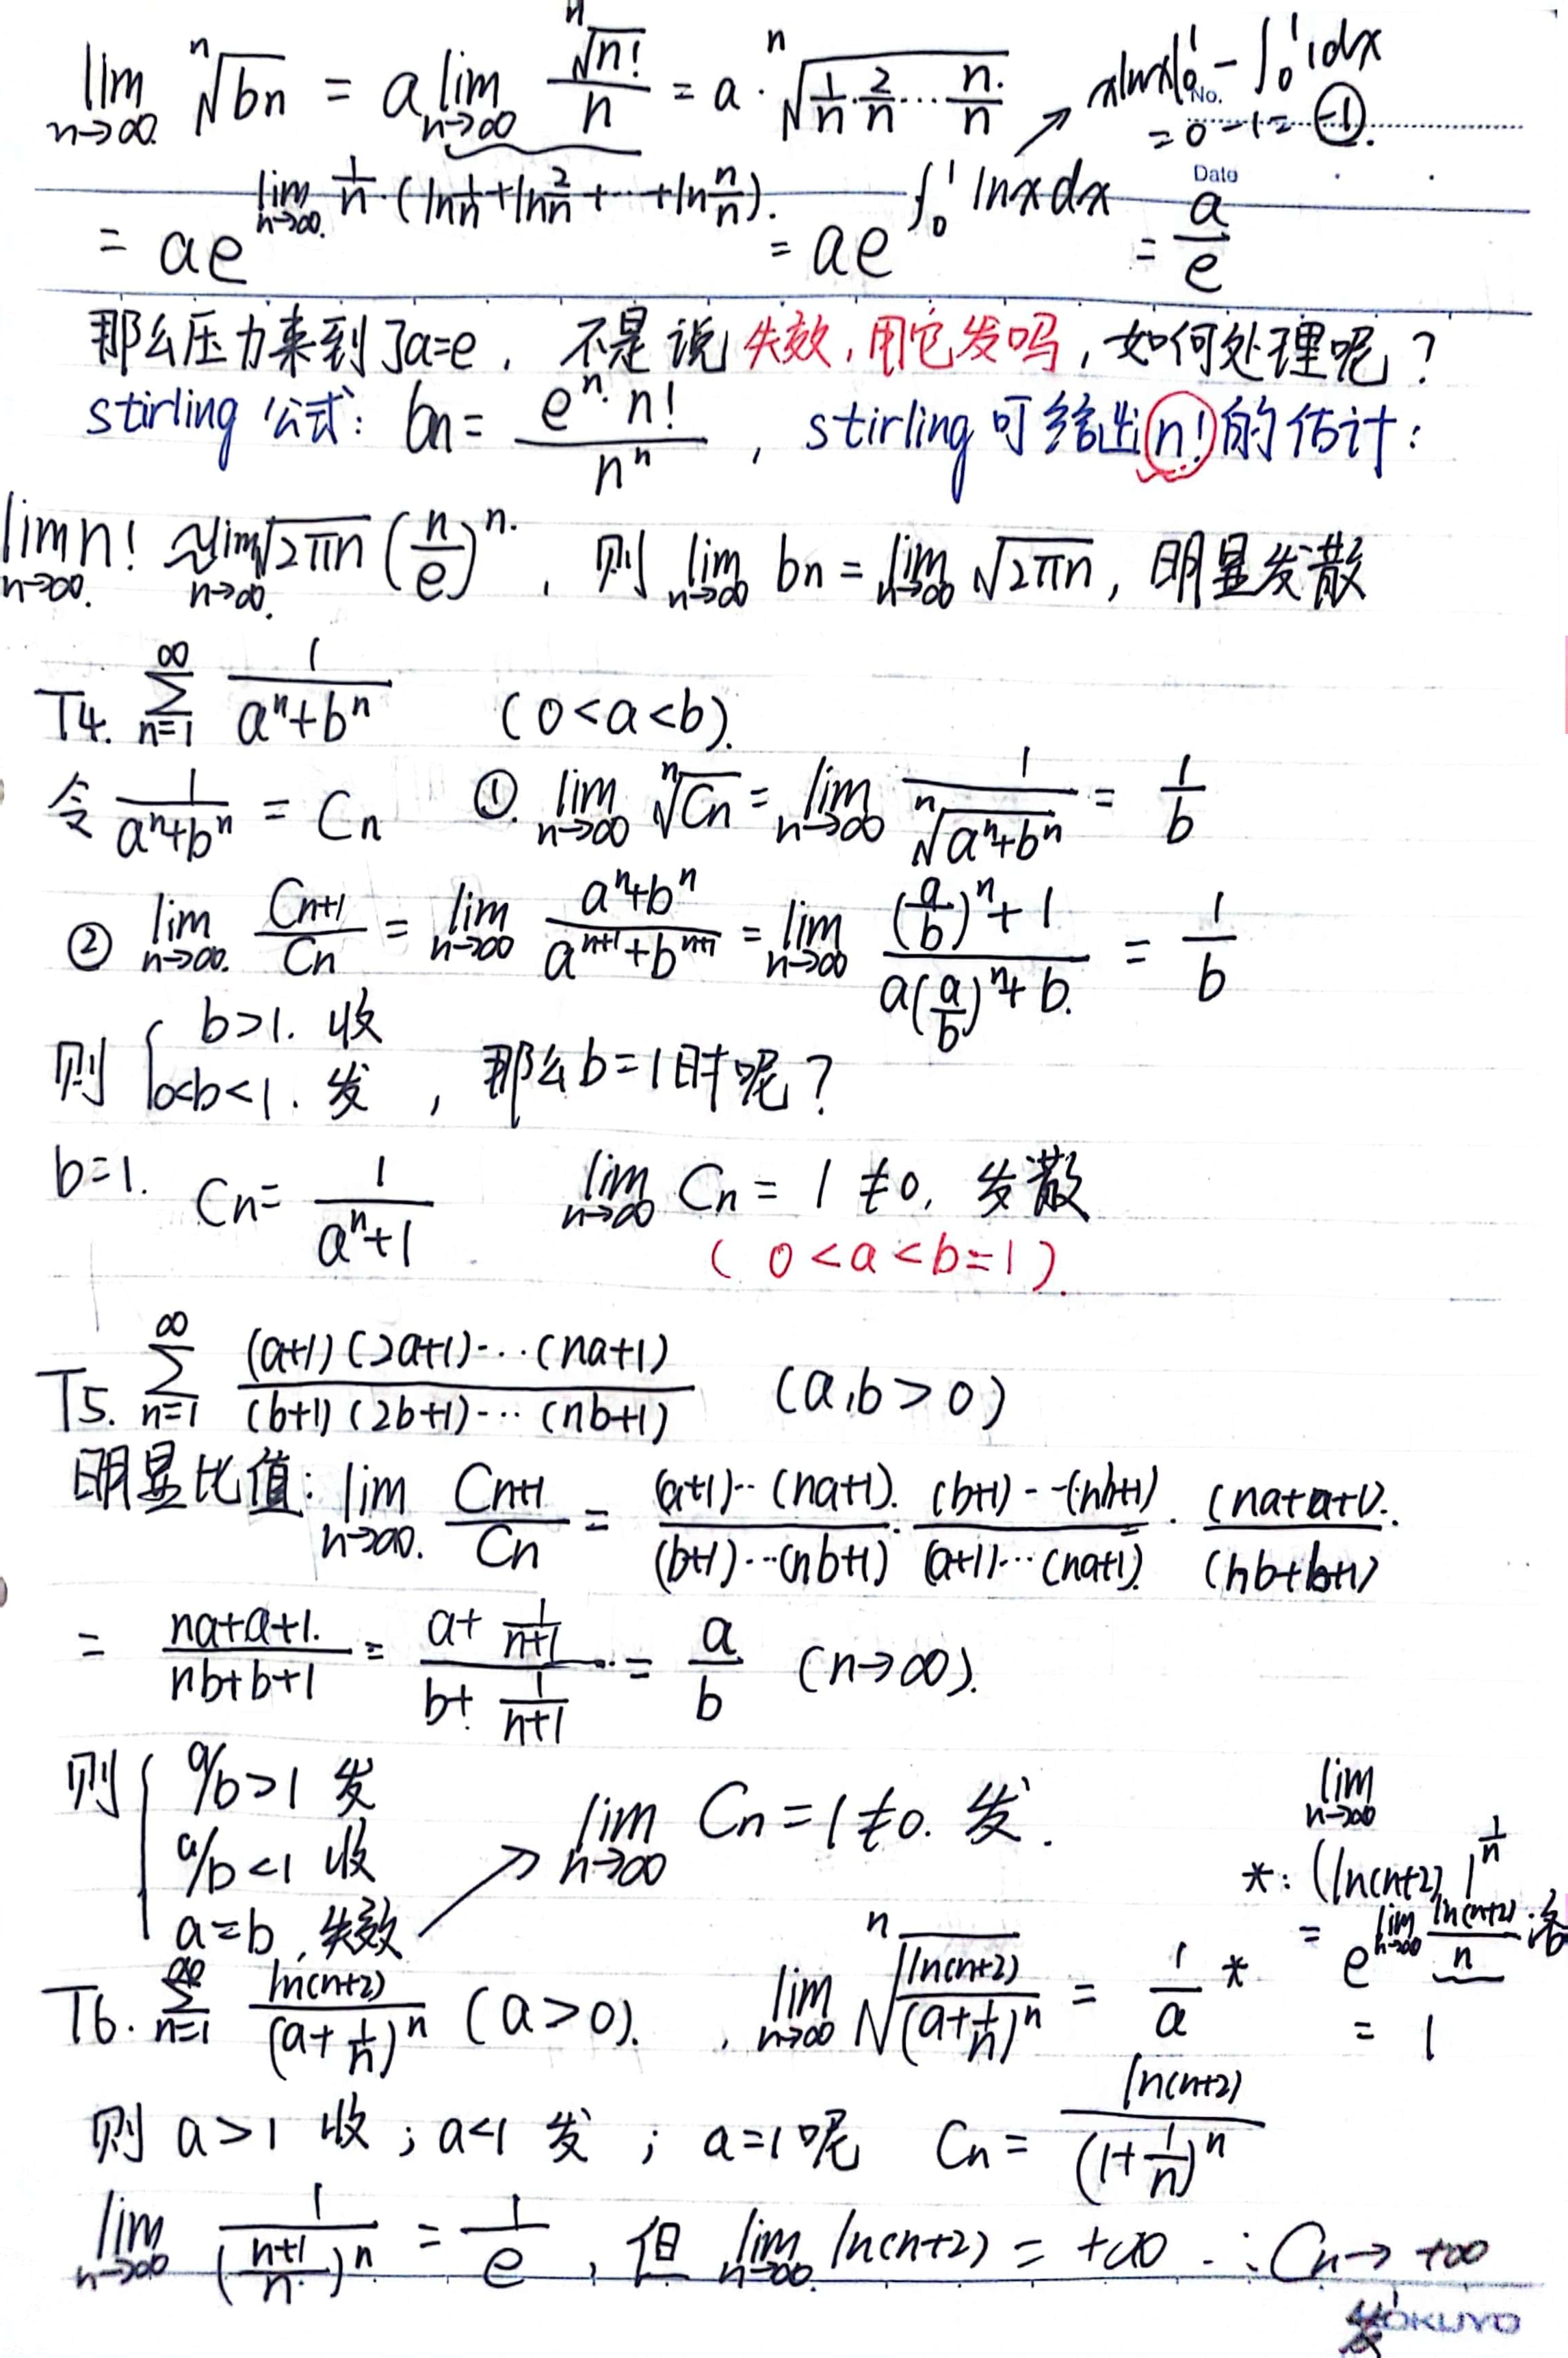 lim n→∞ ⁿ√bn = a lim n→∞ ⁿ√n! / n = a · ⁿ√(1/n · 2/n ··· n/n) ↗ xlnx|₀¹ - ∫₀¹ 1dx
No. = 0 - 1 = -1.
Date
= ae^(lim n→∞ 1/n · (ln 1/n + ln 2/n + ··· + ln n/n)) = ae^(∫₀¹ lnxdx) = a/e
那么压力来到了a=e, 不是说失效,用它发吗,如何处理呢?
stirling公式: bn = eⁿ·n! / nⁿ , stirling可给出n!的估计:
lim n→∞ n! ≈ lim n→∞ √2πn (n/e)ⁿ, 则 lim n→∞ bn = lim n→∞ √2πn, 明显发散
T4. ∞∑n=1 1/(aⁿ+bⁿ) (0<a<b).
令 1/(aⁿ+bⁿ) = Cn ①. lim n→∞ ⁿ√Cn = lim n→∞ 1/ⁿ√(aⁿ+bⁿ) = 1/b
② lim n→∞ Cn+1/Cn = lim n→∞ (aⁿ+bⁿ)/(aⁿ⁺¹+bⁿ⁺¹) = lim n→∞ ((a/b)ⁿ+1)/(a(a/b)ⁿ+b) = 1/b
则 { b>1. 收
0<b<1. 发 , 那么b=1时呢?
b=1. Cn = 1/(aⁿ+1) lim n→∞ Cn = 1 ≠0, 发散
( 0<a<b=1 ).
T5. ∞∑n=1 (a+1)(2a+1)···(na+1) / (b+1)(2b+1)···(nb+1) (a,b>0)
明显比值: lim n→∞ Cn+1/Cn = (a+1)··(na+1)/(b+1)···(nb+1) · (b+1)--(nb+1)/(a+1)···(na+1) · (na+a+1)/(nb+b+1)
= (na+a+1)/(nb+b+1) = (a+1/(n+1))/(b+1/(n+1)) = a/b (n→∞).
则 { a/b>1 发
a/b<1 收
a=b, 失效 ↗ lim n→∞ Cn = 1≠0. 发.
T6. ∞∑n=1 ln(n+2)/(a+1/n)ⁿ (a>0). , lim n→∞ ⁿ√(ln(n+2)/(a+1/n)ⁿ) = 1/a *
lim n→∞
*: (ln(n+2))^(1/n)
= e^(lim n→∞ ln(n+2)/n) :洛
= 1
则 a>1 收 ; a<1 发 ; a=1呢 Cn = ln(n+2)/(1+1/n)ⁿ
lim n→∞ 1/((n+1)/n)ⁿ = 1/e , 但 lim n→∞ ln(n+2) = +∞ ∴Cn→ +∞
发
KOKUYO